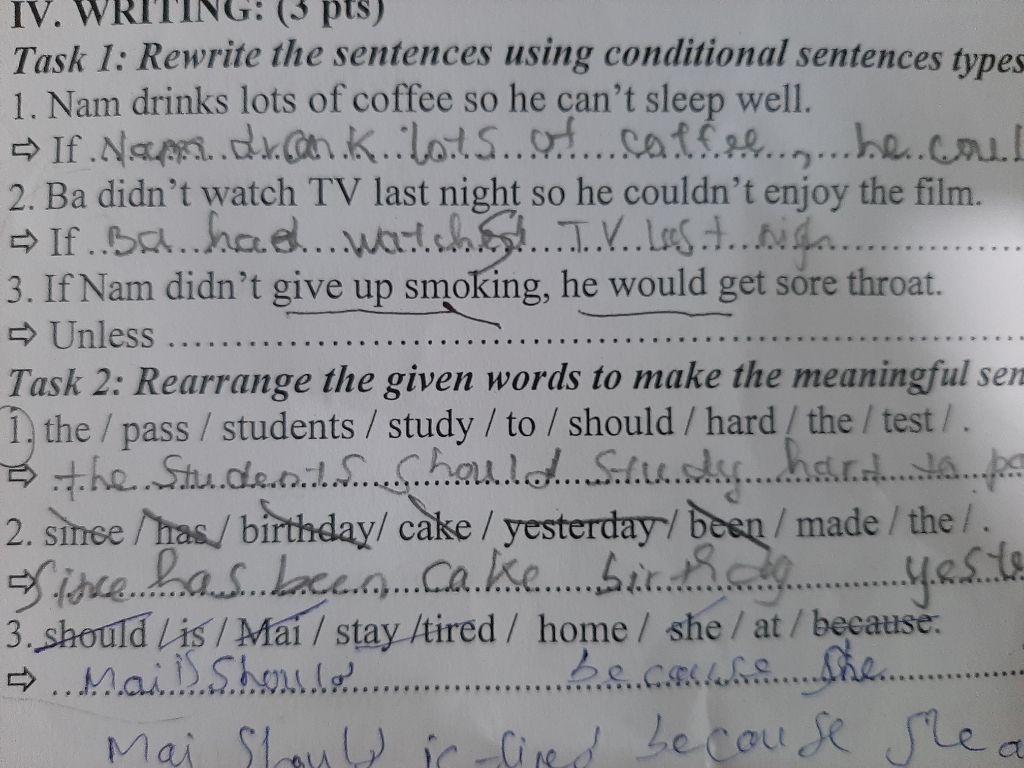 IV. WRITING: (3 pts)
Task 1: Rewrite the sentences using conditional sentences types
1. Nam drinks lots of coffee so he can't sleep well.
⇨ If Nam drank lots of caffee, he coul
2. Ba didn't watch TV last night so he couldn't enjoy the film.
⇨ If Ba had watched TV last nigh
3. If Nam didn't give up smoking, he would get sore throat.
⇨ Unless ..........
Task 2: Rearrange the given words to make the meaningful sen
1. the / pass / students / study / to / should / hard / the / test / .
⇨ the students should study hard to pa
2. since / has / birthday/ cake / yesterday / been / made / the / .
⇨ Since has been cake birthday yeste
3. should / is / Mai / stay /tired / home / she / at / because.
⇨ Mai is should because she
Mai should is tired because she a